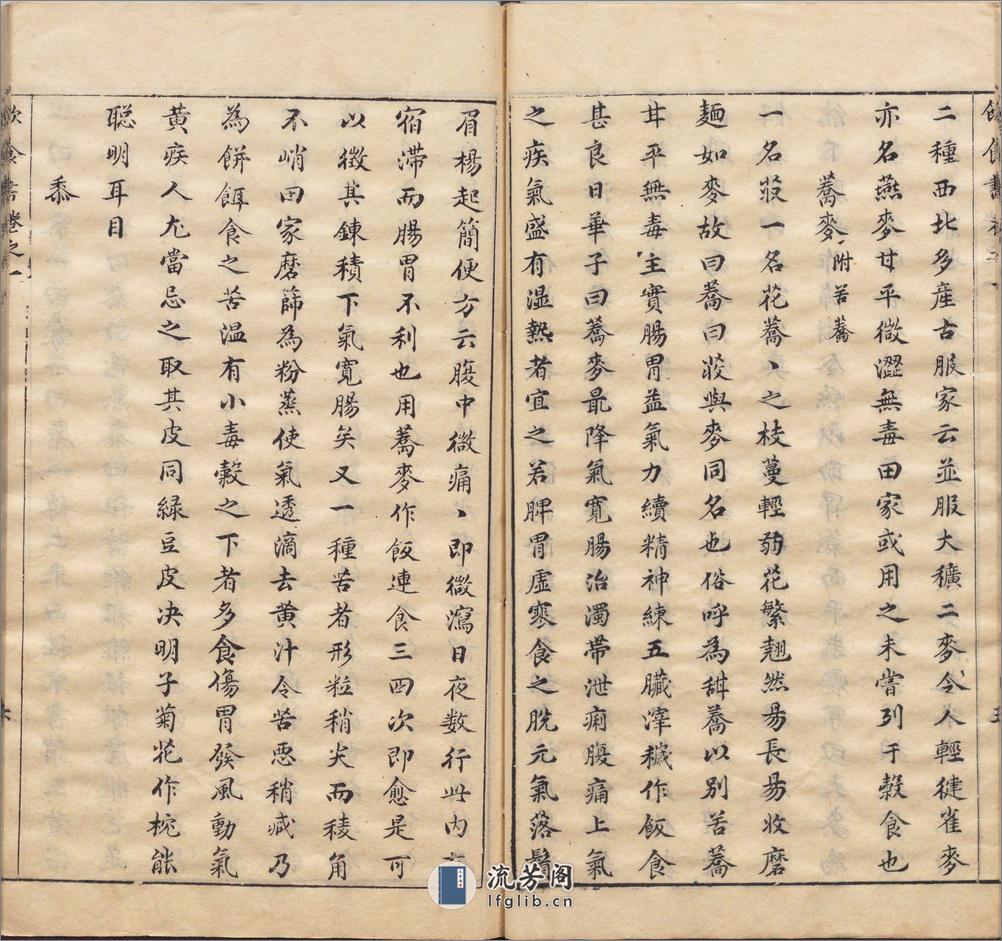 二種西北多産古服家云並服大穬二麥令人輕健雀麥
亦名燕麥甘平微澀無毒田家或用之未嘗列于穀食也
蕎麥附苦蕎
一名荍一名花蕎丶之枝蔓輕弱花繁翹然易長易收磨
麵如麥故曰蕎曰荍與麥同名也俗呼為甜蕎以別苦蕎
甘平無毒主實腸胃益氣力續精神練五臟滓穢作飯食
甚良日華子曰蕎麥最降氣寬腸治濁帶泄痢腹痛上氣
之疾氣盛有湿熱者宜之若脾胃虛寒食之脫元氣落鬚
眉楊起簡便方云腹中微痛丶即微瀉日夜数行此内
宿滯而腸胃不利也用蕎麥作飯連食三四次即愈是可
以徵其鍊積下氣寬腸矣又一種苦者形粒稍尖而稜角
不峭田家磨篩為粉蒸使氣透滴去黄汁令苦悪稍减乃
為餅餌食之苦温有小毒穀之下者多食傷胃發風動氣
黄疾人尤當忌之取其皮同緑豆皮决明子菊花作枕能
聪明耳目
黍
飲食書卷之一
六
流芳阁
lfglib.cn